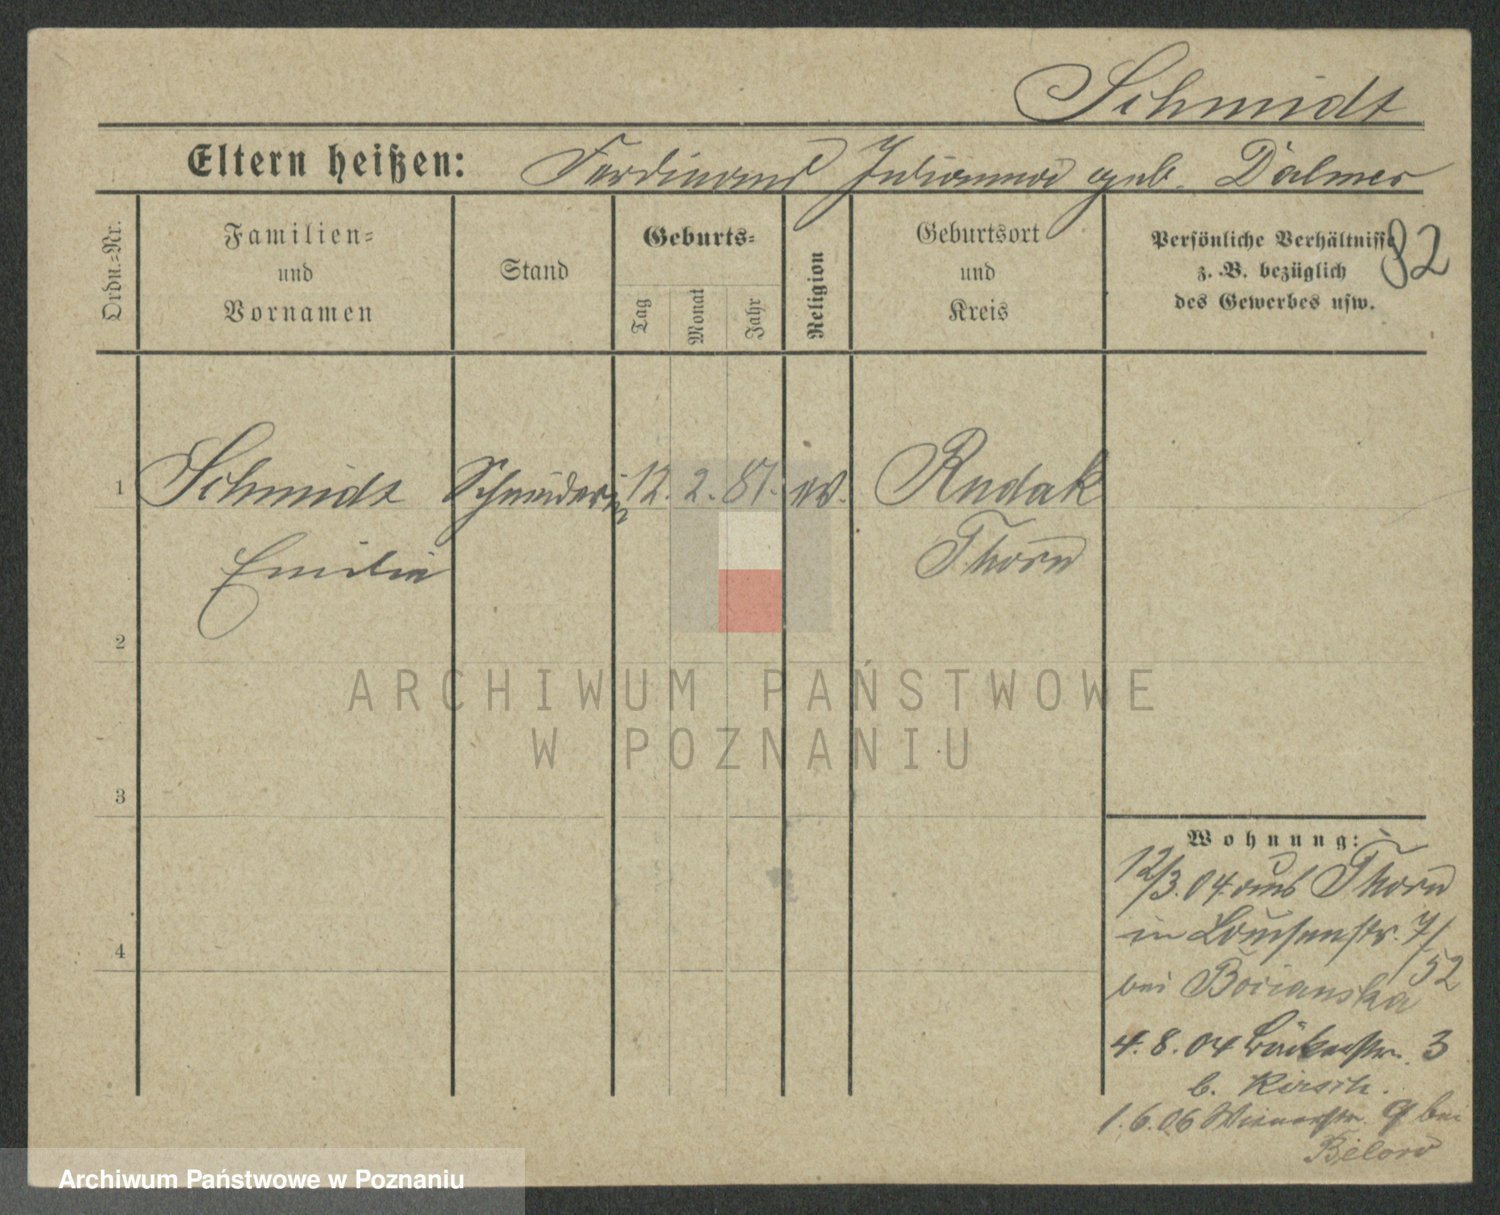 Schmidt
Eltern heißen: Ferdinand Julianna geb. Dalmer
Ordn.=Nr.
Familien=
und
Vornamen
Stand
Geburts=
Tag
Monat
Jahr
Religion
Geburtsort
und
Kreis
Persönliche Verhältnisse
z. B. bezüglich
des Gewerbes usw.
32
1 Schmidt Schneiderin 12. 2. 81. ev. Rudak
Emilie Thorn
2
ARCHIWUM PAŃSTWOWE
W POZNANIU
3
Wohnung:
12/3.04. aus Thorn
in Louisenstr. 7/
52
bei Bocianska
4
4. 8. 04 Bäckerstr. 3
b. Kirsch.
1. 6. 06 Wienerstr. 9 bei
Archiwum Państwowe w Poznaniu